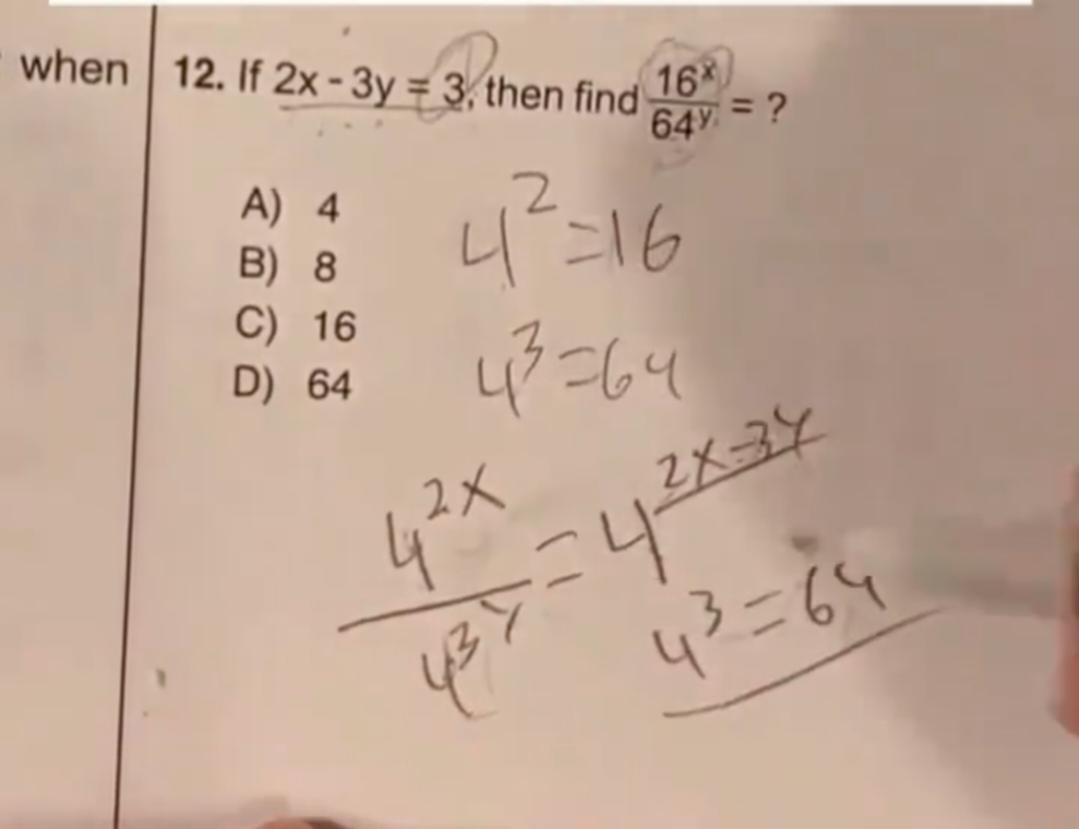 when
12. If 2x - 3y = 3, then find 16ˣ/64ʸ = ?
A) 4
B) 8
C) 16
D) 64
4² = 16
4³ = 64
4²ˣ/4³ʸ = 4²ˣ⁻³ʸ
4³ = 64